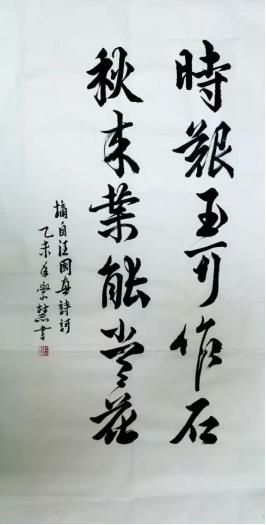 時艱玉可作石
秋來葉能當花
摘自汪國真詩詞
乙未年學慧書